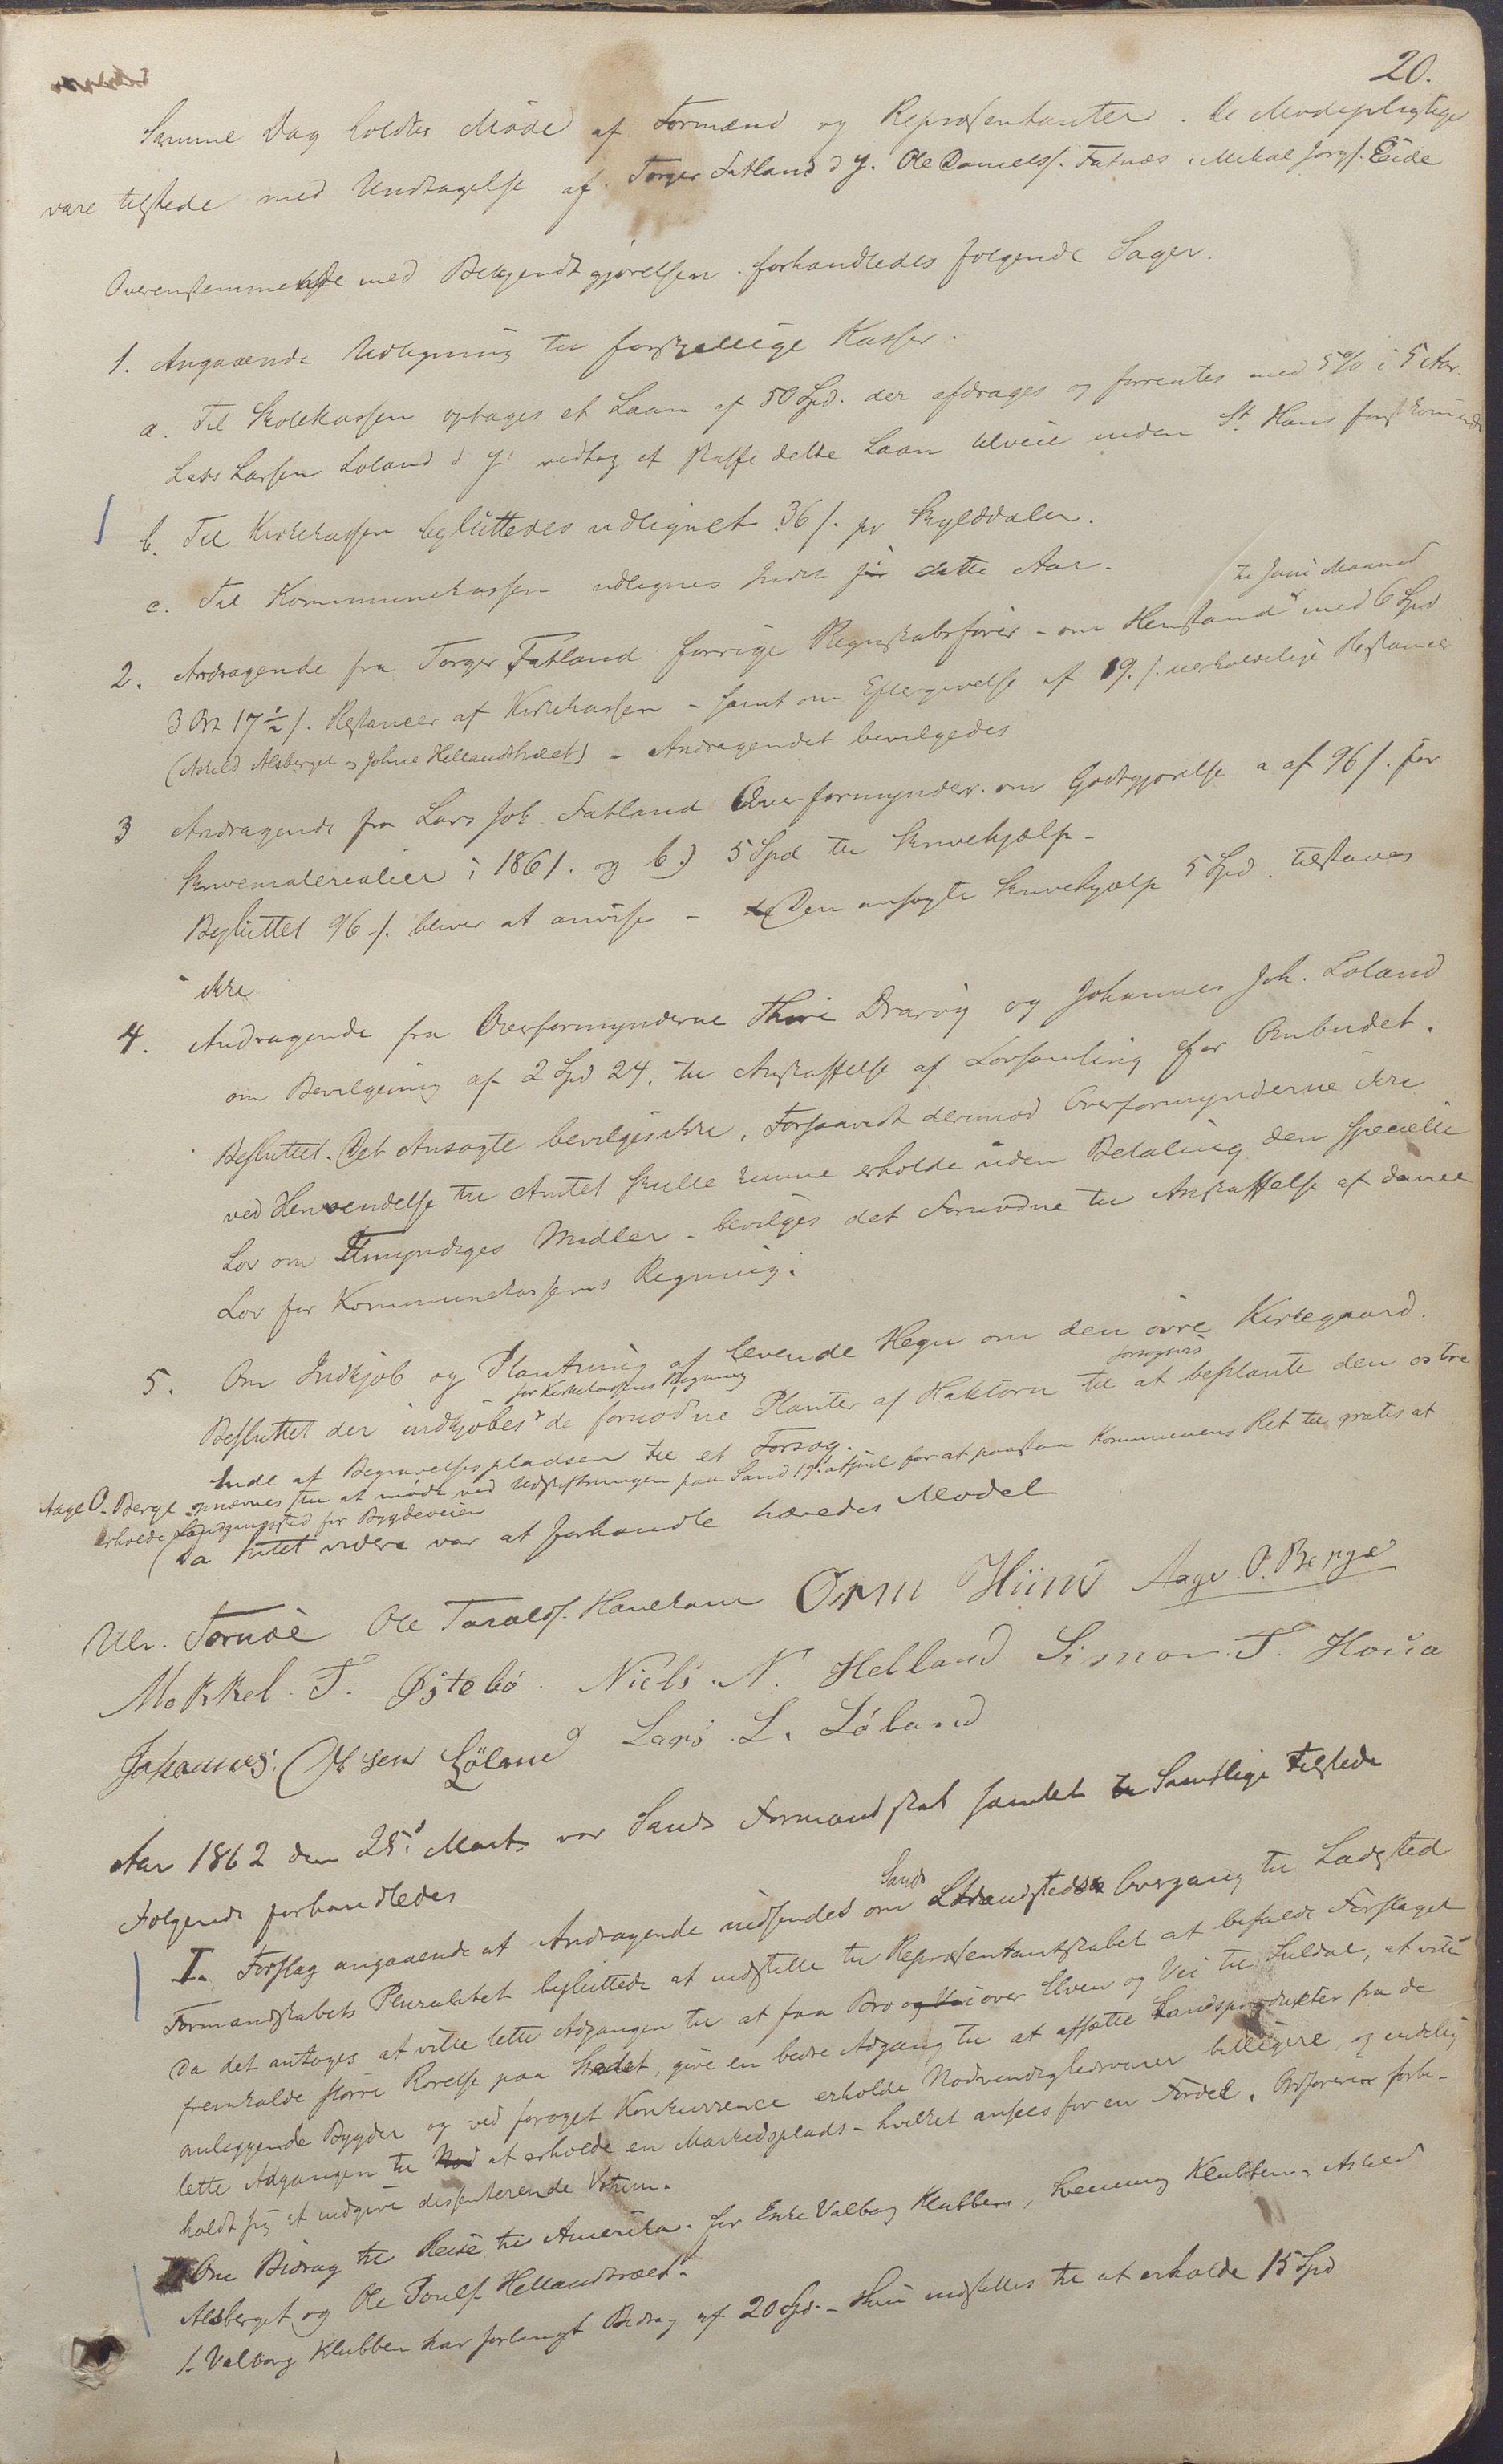 20.
Samme Dag holdtes Møde af Formænd og Repræsentanter. De Mødepligtige
vare tilstede med Undtagelse af Torger Fatland d y. Ole Daniels. Fatnæs. Mikal Jørgs. Eide
Overenstemmende med Bekjendtgjørelsen forhandledes følgende Sager.
1. Angaaende Udligning til forskjellige Kasser.
a. Til Skolekassen optages et Laan af 50 Spd. der afdrages og forrentes med 5% i 5 Aar.
Lars Larsen Løland d y. vedtog at skaffe dette Laan tilveie inden St. Hans førstkommende
b. Til Kirkekassen besluttedes udlignet 36 s. pr Skylddaler.
c. Til Kommunekassen udlignes Intet for dette Aar.
til Juni Maaned
2. Andragende fra Torger Fatland forrige Regnskabsfører - om Henstand med 6 Spd
3 Ort 17½ s. Restancer af Kirkekassen - samt om Eftergivelse af 19 s. uerholdelige Restancer
(Askild Alsberget og Johne Hellandsbræet) - Andragendet bevilgedes
3 Andragende fra Lars Joh. Fatland Overformynder om Godtgjørelse a af 96 s. for
Skrivematerialier i 1861. og b.) 5 Spd til Skrivehjælp -
Besluttet 96 s. bliver at anvise - Den ansøgte Skrivehjælp 5 Spd. tilstaaes
ikke
4. Andragende fra Overformynderne Thore Drarvig og Johannes Joh. Løland
om Bevilgning af 2 Spd 24. til Anskaffelse af Lovsamling for Ombudet.
Besluttet. Det Ansøgte bevilges ikke. Forsaavidt derimod Overformynderne ikke
ved Henvendelse til Amtet skulle kunne erholde uden Betaling den specielle
Lov om Umyndiges Midler - bevilges det Fornødne til Anskaffelse af denne
Lov for Kommunekassens Regning.
5. Om Indkjøb og Plantning af levende Hegn om den øvre Kirkegaard.
for Kirkekassens Regning forsøgsvis
Besluttet der indkjøbes de fornødne Planter af Haktorn til at beplante den østre
Ende af Begravelsespladsen til et Forsøg.
Aage O. Berge opnævnes til at møde ved Udskiftningen paa Sand 19de April for at paastaa Kommunens Ret til gratis at
erholde Landgangssted for Bygdeveien
Da Intet videre var at forhandle hævedes Mødet
Ulr. Tornøe Ole Taralds. Havekam Orm Hiim Aage. O. Berge
Mekkel. T. Østebø. Niels. N. Helland Simon. T. Hovda
Johannes. Olsen Løland Lars. L. Løland
Aar 1862 den 25de Marts var Sands Formandskab samlet Samtlige tilstede
Følgende forhandledes
Sands
I. Forslag angaaende at Andragende indsendes om Strandsteds Overgang til Ladested
Formandskabets Pluralitet besluttede at indstille til Repræsentantskabet at befalde Forslaget
da det antoges at ville lette Adgangen til at faa Bro og Vei over Elven og Vei til Suldal, at ville
fremkalde større Rørelse paa Stedet, give en bedre Adgang til at afsætte Landsprodukter fra de
omliggende Bygder og ved forøget Konkurrence erholde Nødvendighedsvarer billigere, og endelig
lette Adgangen til at erholde en Markedsplads - hvilket ansees for en Fordel. Ordføreren forbe-
holdt sig at indgive dissenterende Votum.
II Om Bidrag til Reise til Amerika for Enke Valborg Klubben, Henning Klubben, Askild
Alsberget og Ole Pouls. Hellandsbræet.
1. Valborg Klubben har forlangt Bidrag af 20 Spd. - Hun indstilles til at erholde 15 Spd